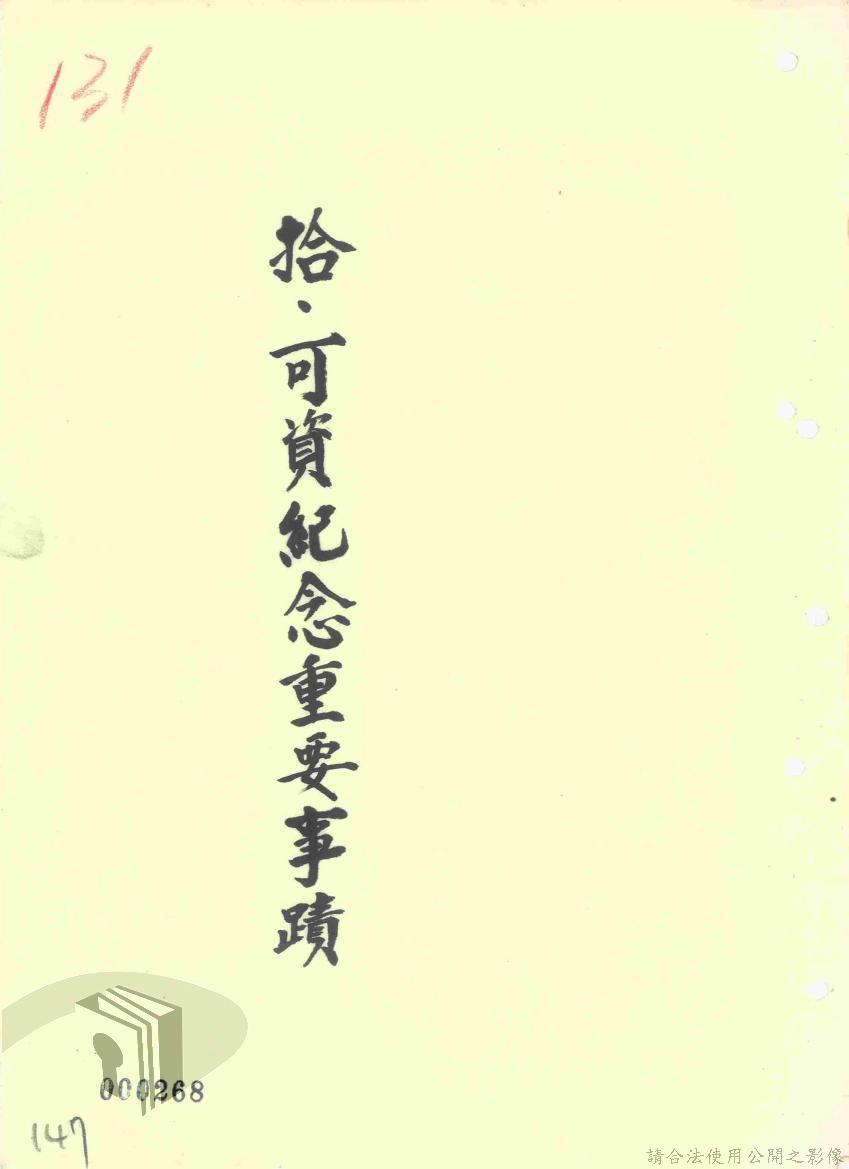 131
拾、可資紀念重要事蹟
000268
147
請合法使用公開之影像